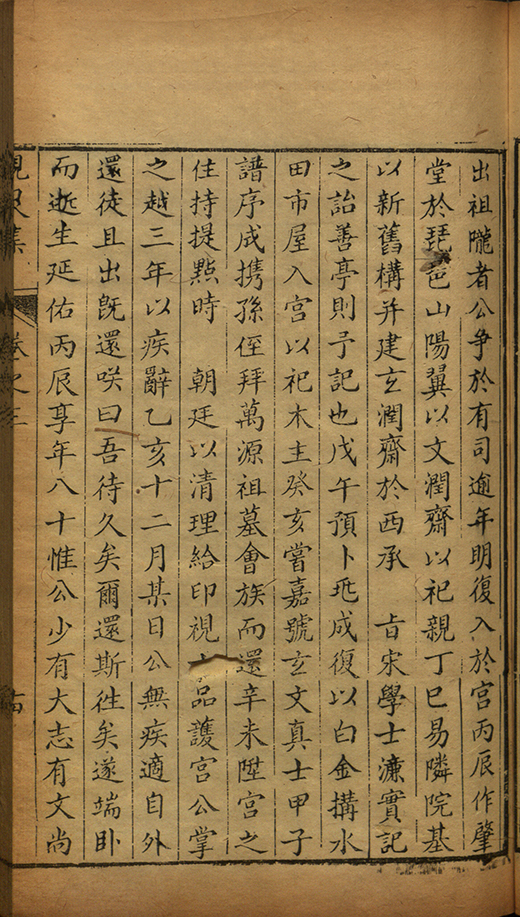 出祖隴者公爭於有司逾年明復入於宮丙辰作肇
堂於琵琶山陽翼以文潤齋以祀親丁巳易隣院基
以新舊構并建玄潤齋於西承　旨宋學士濂實記
之詒善亭則予記也戊午預卜兆成復以白金搆水
田市屋入宮以祀木主癸亥嘗嘉號玄文真士甲子
譜序成携孫侄拜萬源祖墓會族而還辛未陞宮之
住持提點時　朝廷以清理給印視品護宮公掌
之越三年以疾辭乙亥十二月某日公無疾適自外
還徒且出旣還咲曰吾待久矣爾還斯徃矣遂端卧
而逝生延佑丙辰享年八十惟公少有大志有文尚
峴泉集　卷之三